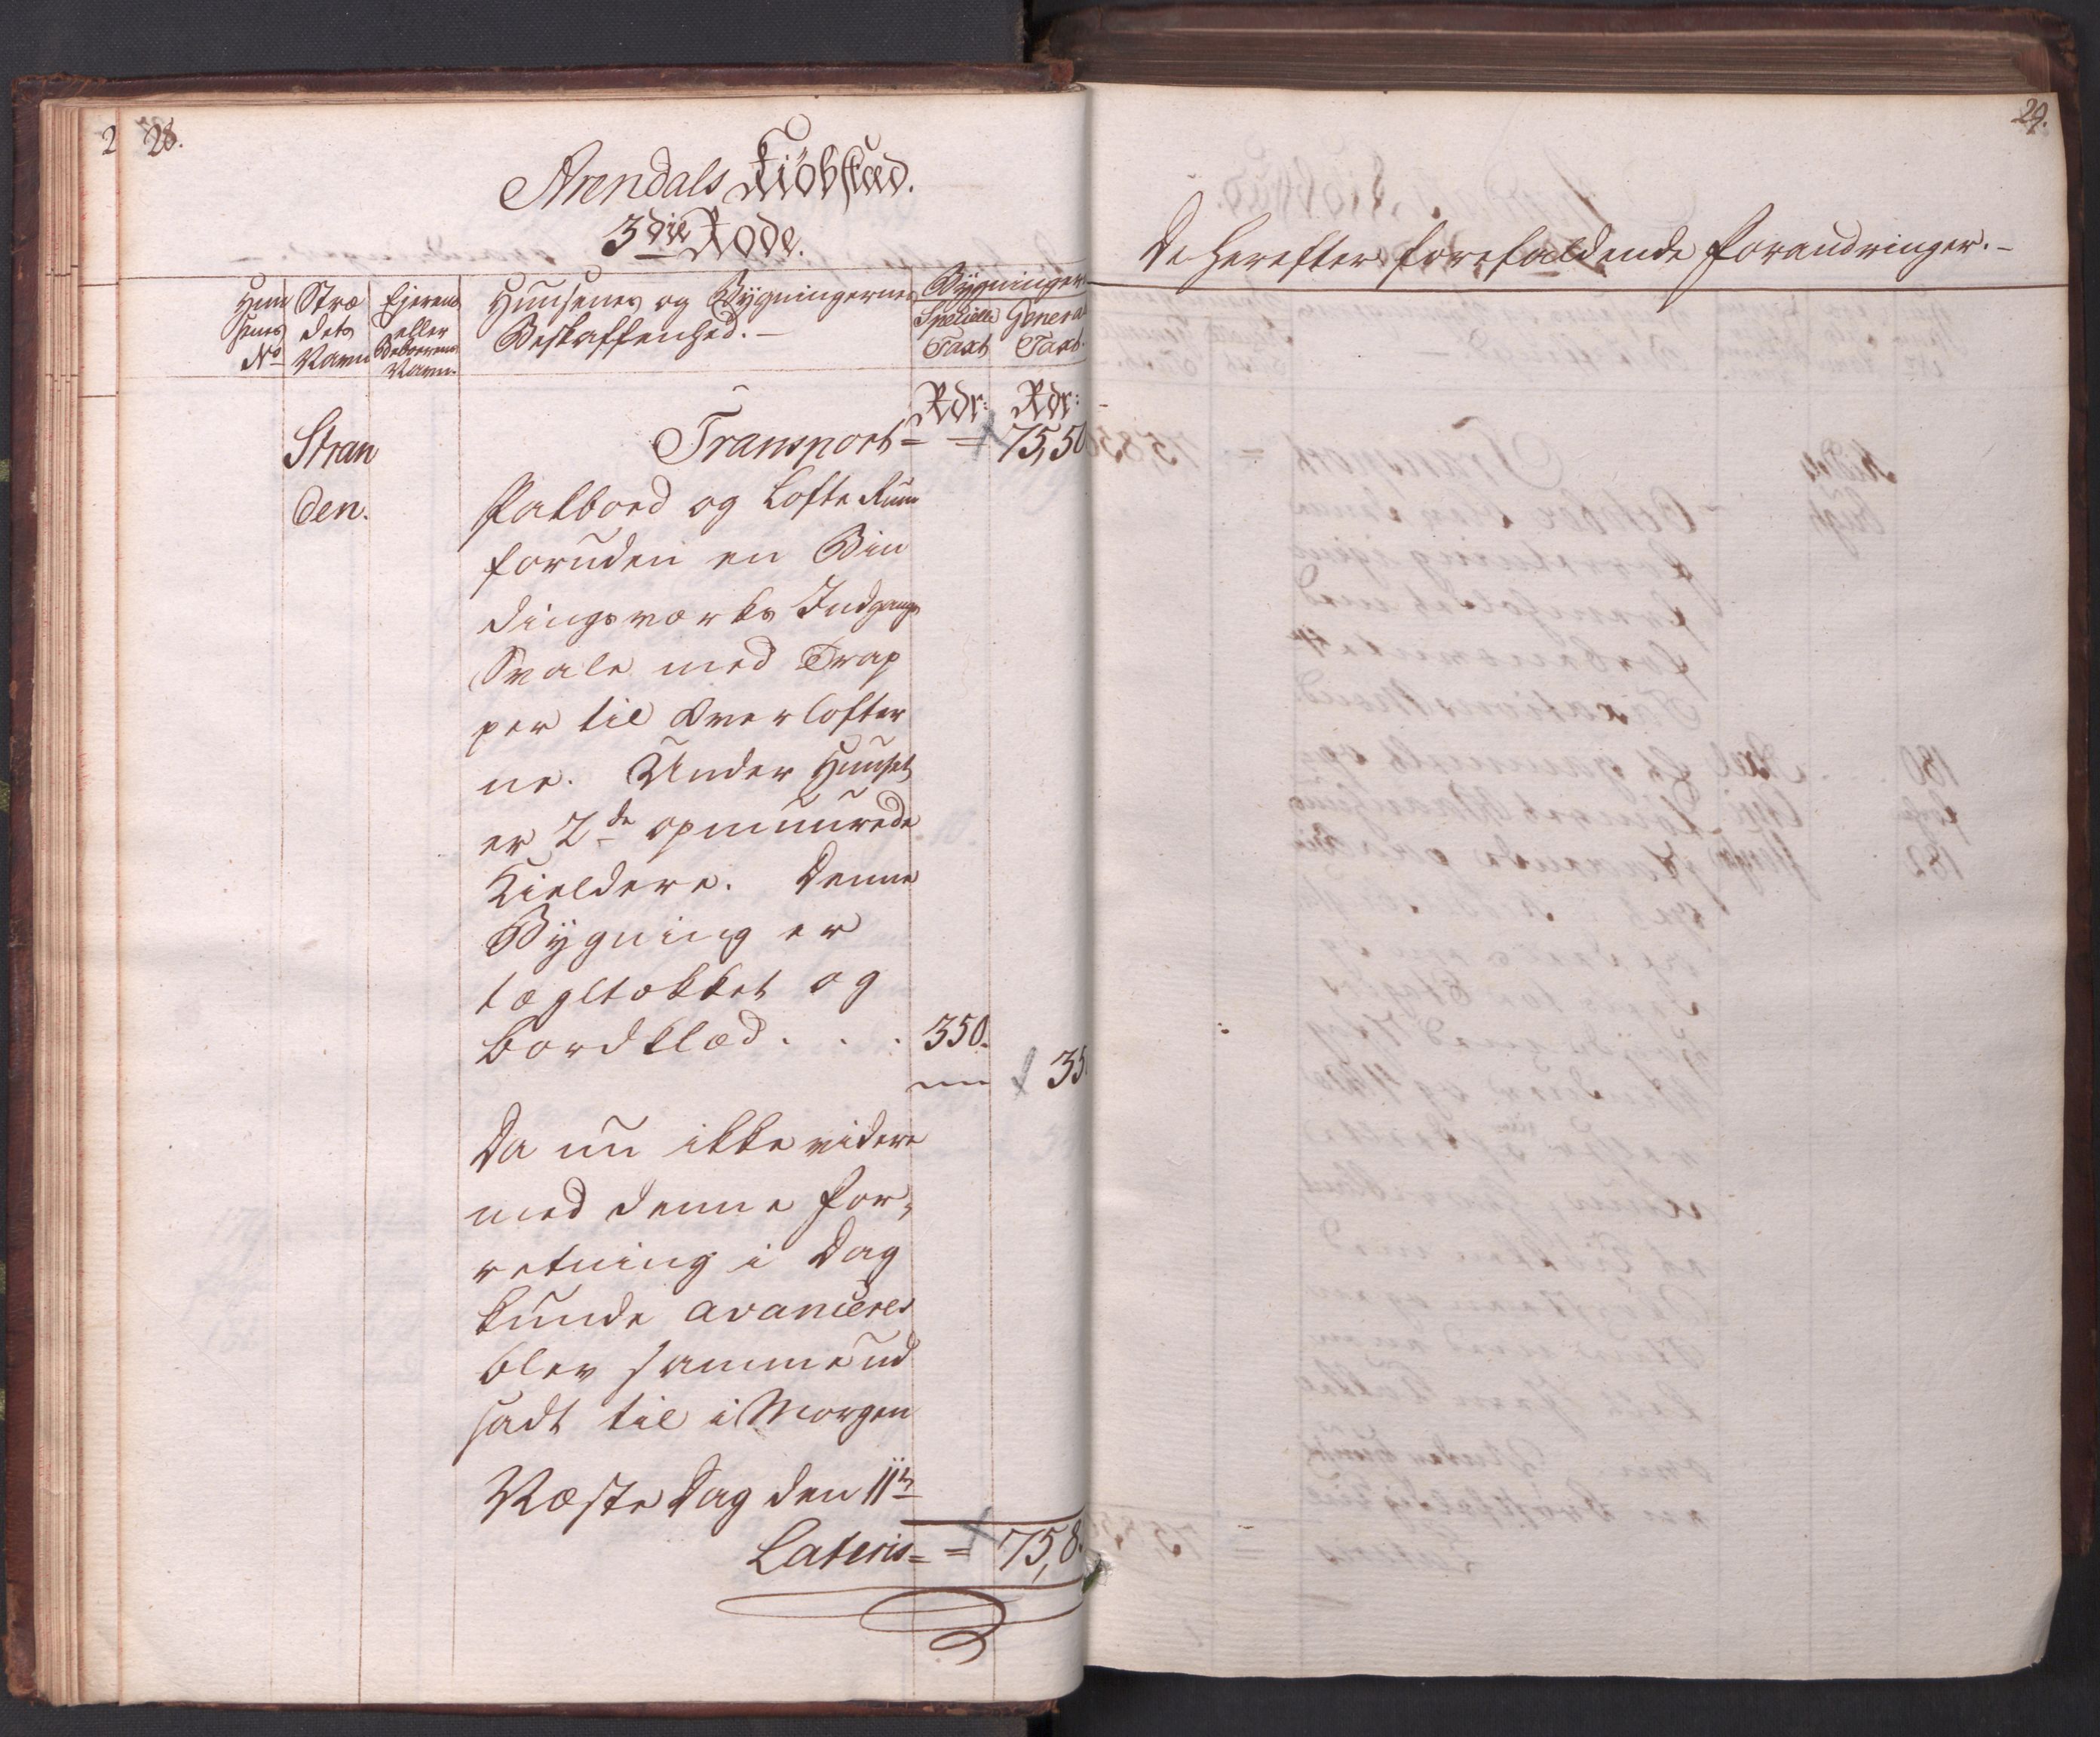 28.
Arendals Kiöbstæd.
3die Rode.
Huu
senes
No
Stræ
dets
Navn
Ejerens
eller
Beboerens
Navn.
Huusenes og Bygningernes
Beskaffenhed. -
Bygninger
Specielle
Taxt
Genera
Taxt.
Rdr: Rdr:
Transport = = 75,50
Stran
den.
Pakbord og Lofte Rum
foruden en Bin
dingsværks Indgangs
Svale med Trap
per til Overlofter
ne. Under Huuset
er 2de opmuurede
Kieldere. Denne
Bygning er
tægltækket og
bordklæd . . . 350.
35
Da nu ikke videre
med denne For,
retning i Dag
kunde avanceres
blev samme ud
sadt til i Morgen
Næste Dag den 11te
Lateris = = 75,8
29.
De herefter forefaldende Forandringer. -